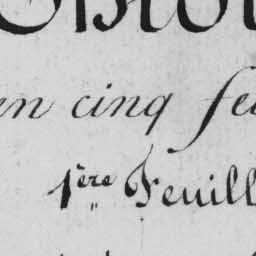 en cinq fe
1ère Feuill